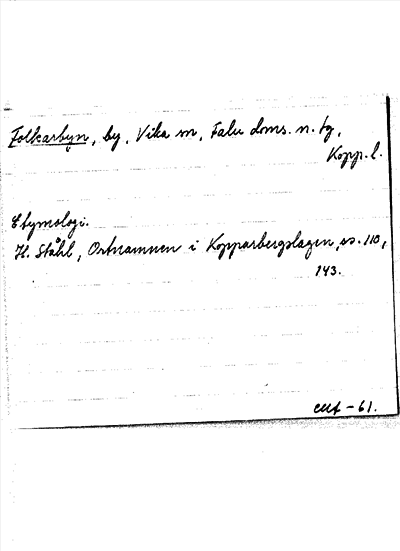 Folkarbyn, by, Vika sn, Falu doms. n. tg,
Kopp. l.
Etymologi.
H. Ståhl, Ortnamnen i Kopparbergslagen, ss. 110,
143.
-61.